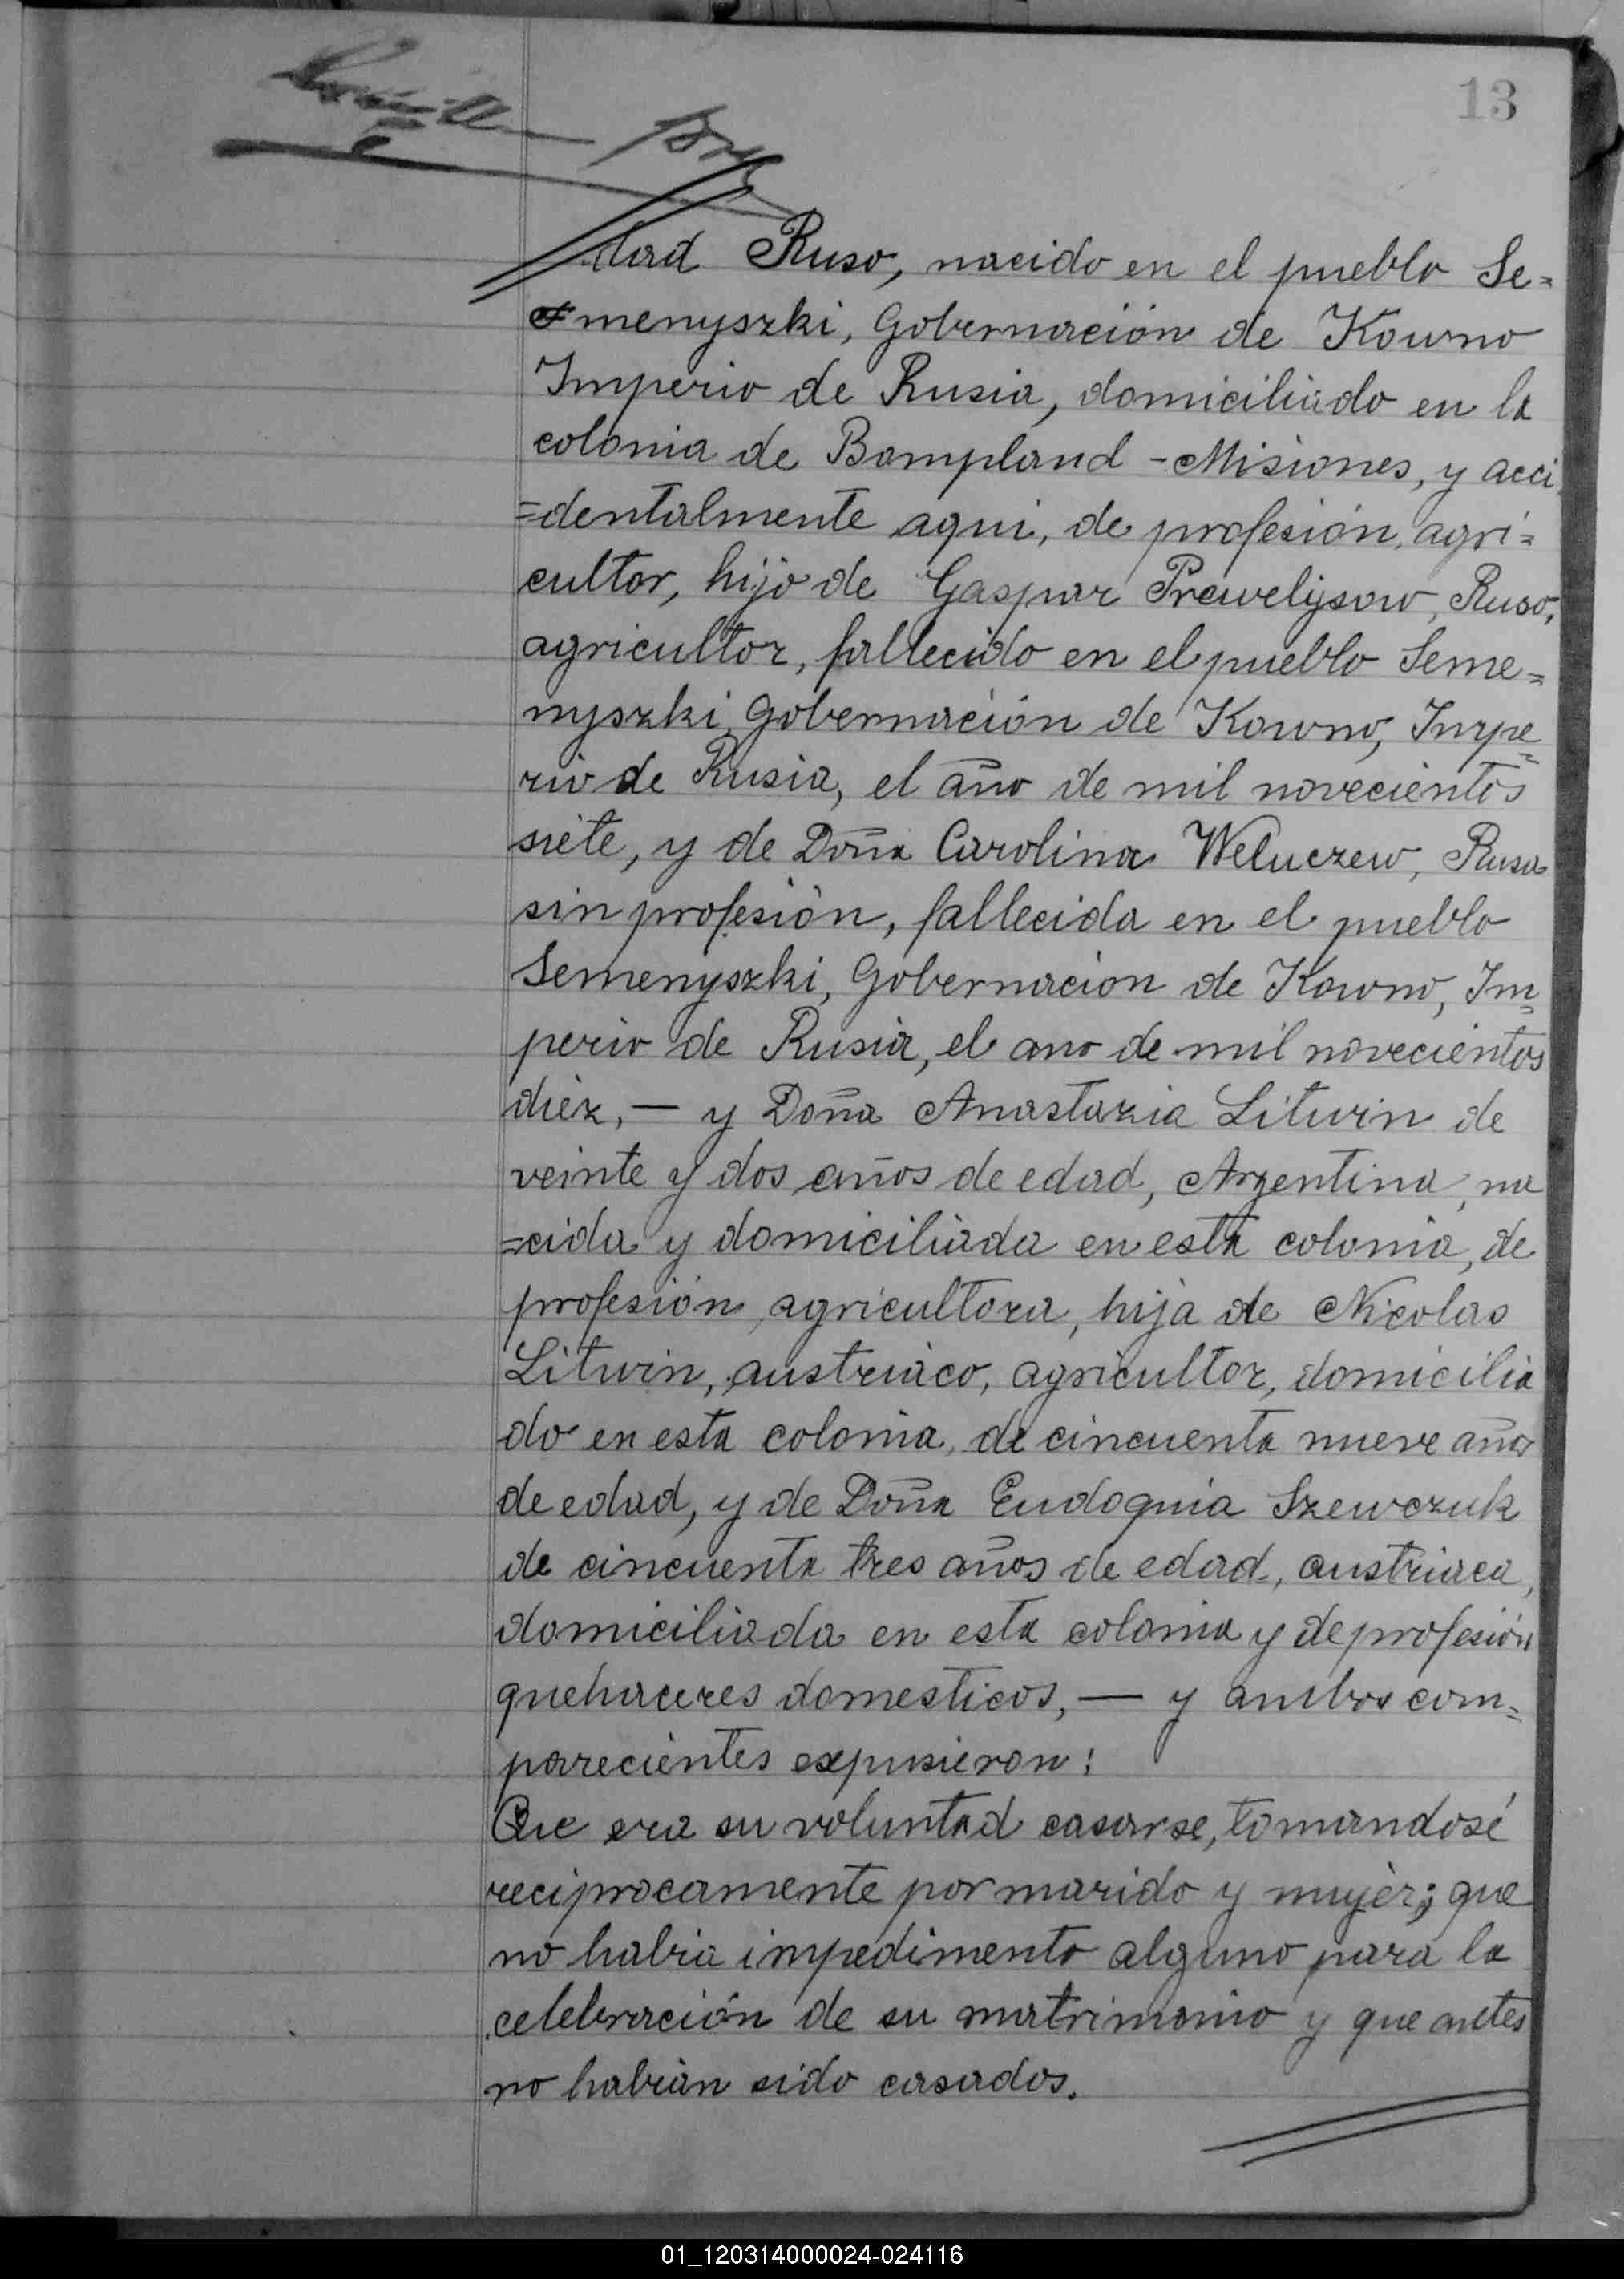 13
dad Ruso, nacido en el pueblo Se=
=menyszki, Gobernación de Kowno
Imperio de Rusia, domiciliado en la
colonia de Bompland - Misiones, y acci
=dentalmente aqui, de profesión, agri=
cultor, hijo de Gaspar Prewelijsow, Ruso,
agricultor, fallecido en el pueblo Seme=
nyszki, Gobernación de Kowno, Impe=
rio de Rusia, el año de mil novecientos
siete, y de Doña Carolina Weluczew, Rusa
sin profesión, fallecida en el pueblo
Semenyszki, Gobernacion de Kowno, Im=
perio de Rusia, el ano de mil novecientos
diez, — y Doña Anastazia Litwin de
veinte y dos años de edad, Argentina, na
=cida y domiciliada en esta colonia, de
profesión, agricultora, hija de Nicolas
Litwin, austriaco, agricultor, domicilia
do en esta colonia, de cincuenta nueve años
de edad, y de Doña Eudoquia Szewczuk
de cincuenta tres años de edad, austriaca,
domiciliada en esta colonia y de profesión
quehaceres domesticos, — y ambos com=
parecientes expusieron:
Que era su voluntad casarse, tomandosé
reciprocamente por marido y mujer; que
no habia impedimento alguno para la
celebración de su matrimonio y que antes
no habian sido casados.
01_120314000024-024116